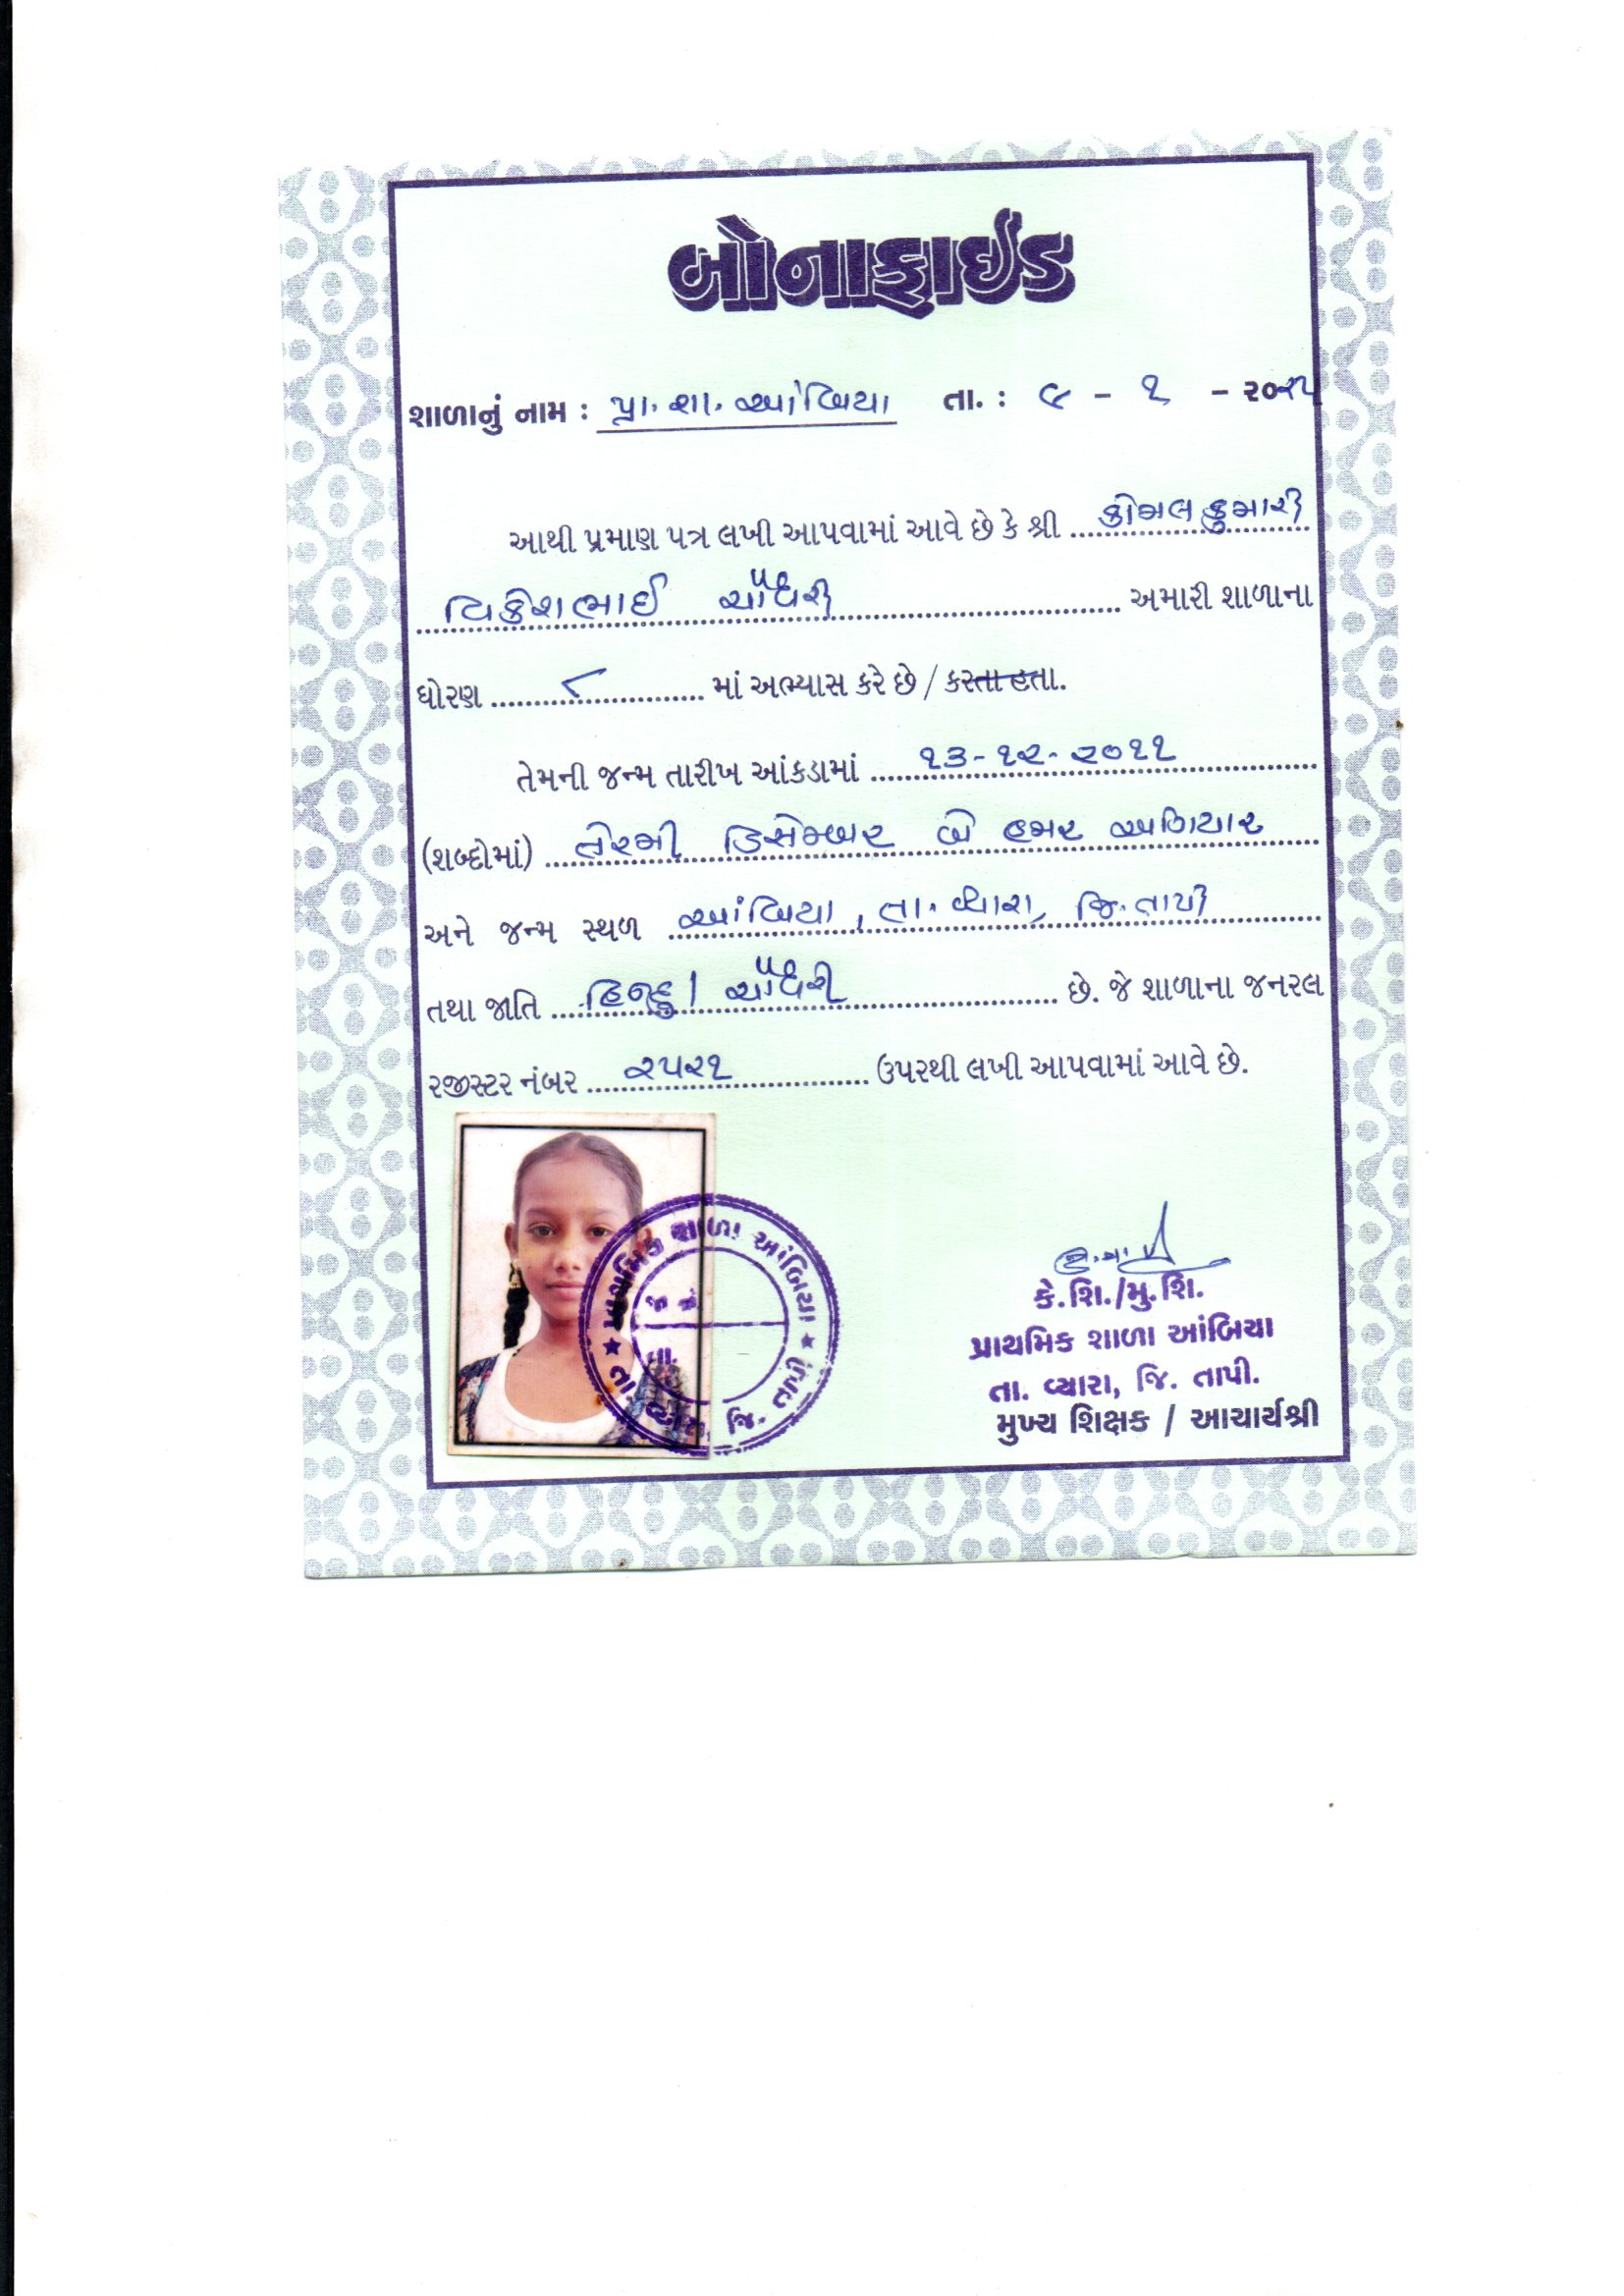 બોનાફાઈડ
શાળાનું નામ : પ્રા. શા. આંબિયા તા. : ૯ - ૧ - ૨૦૨૫
આથી પ્રમાણ પત્ર લખી આપવામાં આવે છે કે શ્રી કોમલકુમારી
વિકેશભાઈ ચૌધરી અમારી શાળાના
ધોરણ ૮ માં અભ્યાસ કરે છે / કરતા હતા.
તેમની જન્મ તારીખ આંકડામાં ૧૩-૧૨-૨૦૧૧
(શબ્દોમાં) તેરમી ડિસેમ્બર બે હજાર અગિયાર
અને જન્મ સ્થળ આંબિયા, તા. વ્યારા, જિ. તાપી
તથા જાતિ હિન્દુ ચૌધરી છે. જે શાળાના જનરલ
રજીસ્ટર નંબર ૨૫૨૧ ઉપરથી લખી આપવામાં આવે છે.
પ્રાથમિક શાળા આંબિયા ★ તા. વ્યારા, જિ. તાપી ★
કે.શિ./મુ.શિ.
પ્રાથમિક શાળા આંબિયા
તા. વ્યારા, જિ. તાપી.
મુખ્ય શિક્ષક / આચાર્યશ્રી